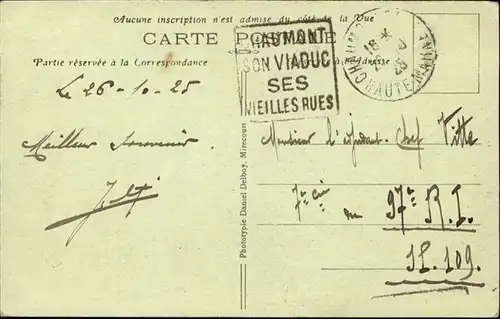 Aucune inscription n'est admise du côté de la Vue
CARTE POSTALE
Partie réservée à la Correspondance
Adresse
CHAUMONT
SON VIADUC
SES
VIEILLES RUES
Le 26-10-25
Meilleur souvenir.
Phototypie Daniel Delboy, Mirecourt
Monsieur l'adjudant-Chef Vitte
7e Cie
du 97e R.I.
S.P. 109.